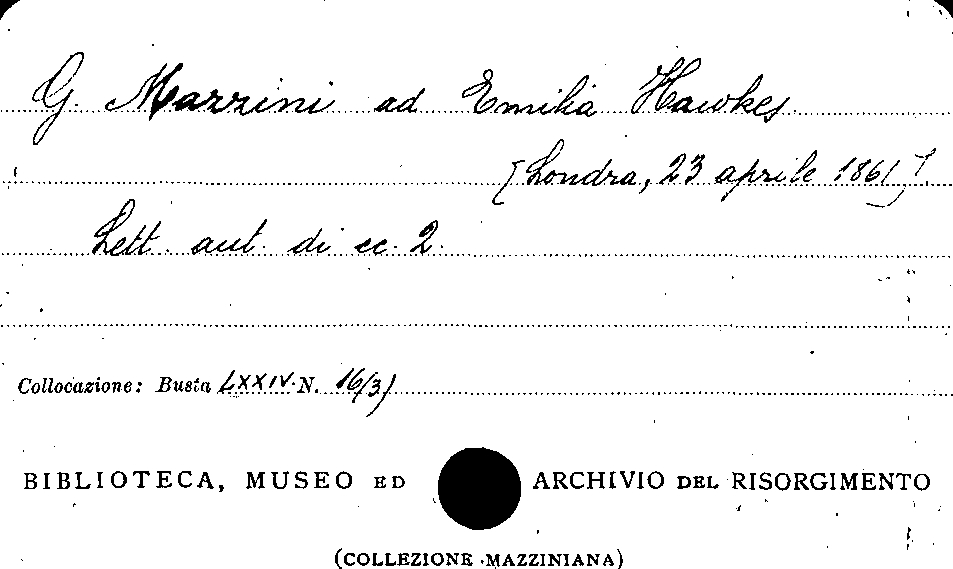 G. Mazzini ad Emilia Hawkes
[Londra, 23 aprile 1861].
Lett. aut. di cc. 2.
Collocazione: Busta LXXIV. N. 16/3)
BIBLIOTECA, MUSEO ED ARCHIVIO DEL RISORGIMENTO
(COLLEZIONE MAZZINIANA)